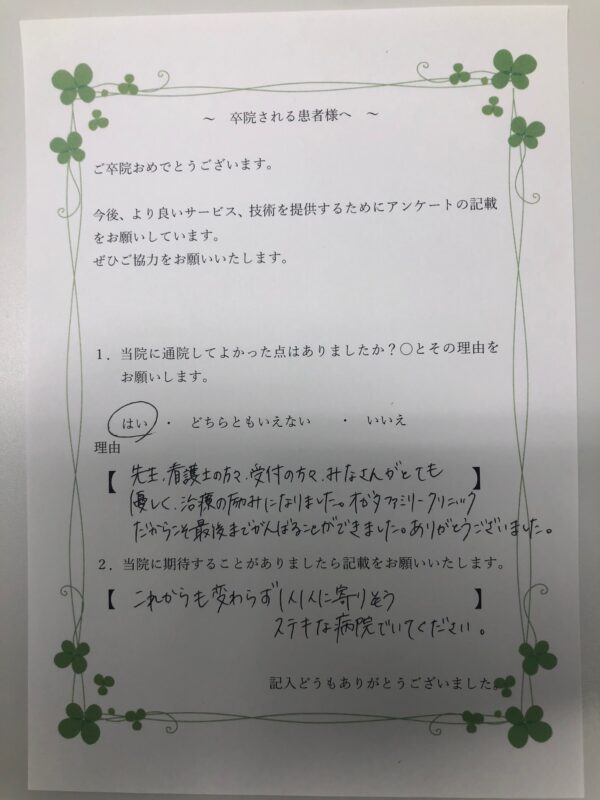 ～　卒院される患者様へ　～
ご卒院おめでとうございます。
今後、より良いサービス、技術を提供するためにアンケートの記載
をお願いしています。
ぜひご協力をお願いいたします。
１．当院に通院してよかった点はありましたか？○とその理由を
お願いします。
はい　・　どちらともいえない　　・　いいえ
理由
【 先生、看護士の方々、受付の方々、みなさんがとても 】
優しく、治療の励みになりました。オガタファミリークリニック
だからこそ最後までがんばることができました。ありがとうございました。
２．当院に期待することがありましたら記載をお願いいたします。
【 これからも変わらず1人1人に寄りそう 】
ステキな病院でいてください。
記入どうもありがとうございました。